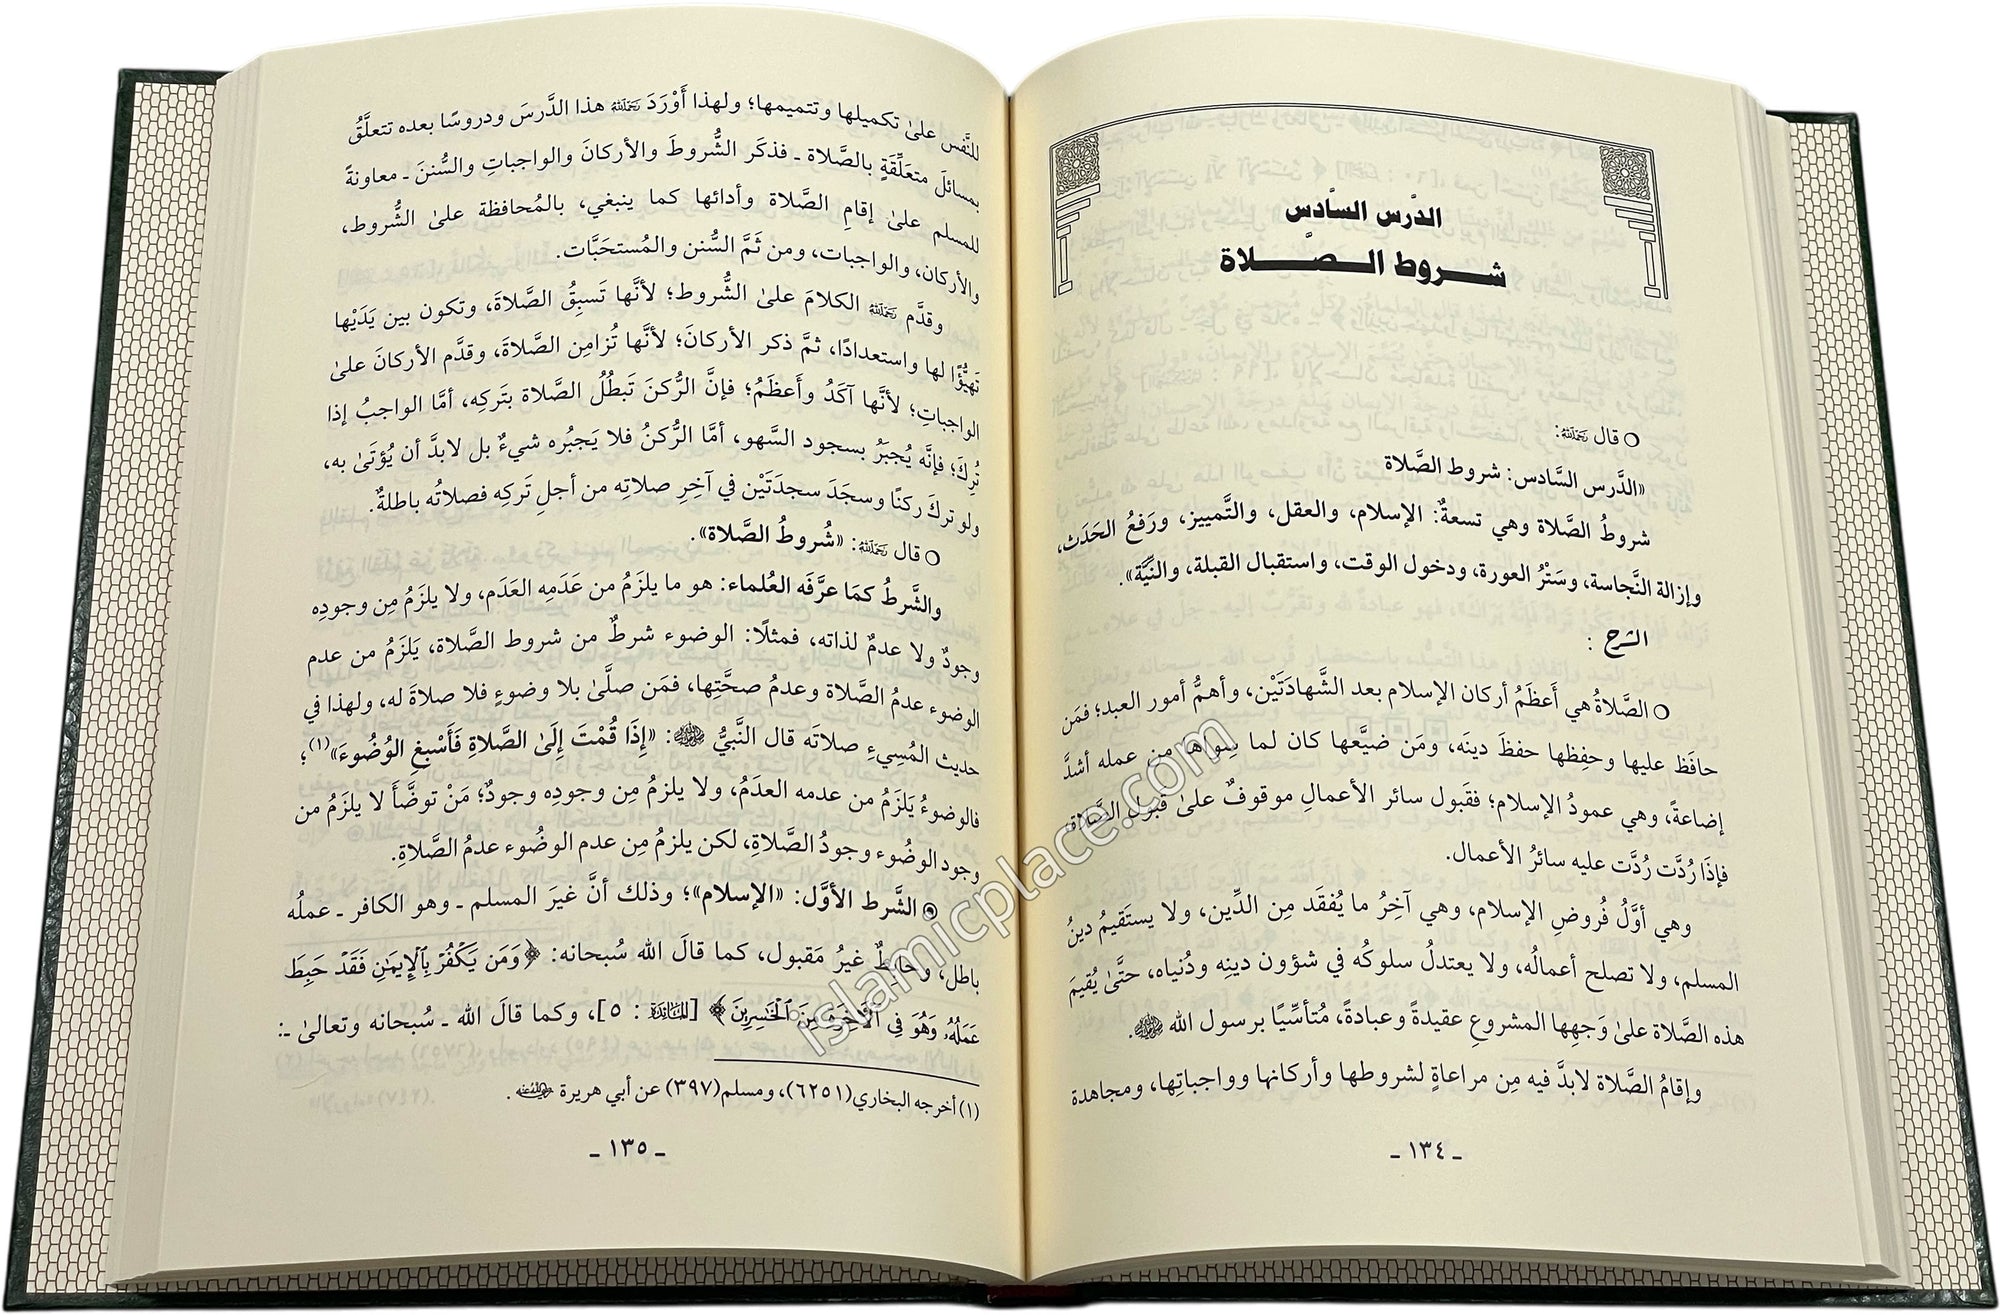 الدَّرس السَّادس
شروط الصَّلاة
○ قال رَحِمَهُ ٱللَّهُ:
«الدَّرس السَّادس: شروط الصَّلاة
شروطُ الصَّلاة وهي تسعةٌ: الإسلام، والعقل، والتَّمييز، ورَفعُ الحَدَث،
وإزالة النَّجاسة، وسَتْرُ العورة، ودخول الوقت، واستقبال القبلة، والنيَّة».
الشرح :
○ الصَّلاةُ هي أَعظَمُ أركان الإسلام بعد الشَّهادَتَيْن، وأهمُّ أمور العبد؛ فمَن
حافَظ عليها وحفِظها حفظَ دينَه، ومَن ضيَّعها كان لما سِواها من عمله أشدَّ
إضاعةً، وهي عمودُ الإسلام؛ فقَبول سائر الأعمالِ موقوفٌ علىٰ قَبول الصَّلاة،
فإذَا رُدَّت رُدَّت عليه سائرُ الأعمال.
وهي أوَّلُ فُروضِ الإسلام، وهي آخِرُ ما يُفقَد مِن الدِّين، ولا يستَقيمُ دينُ
المسلم، ولا تصلح أعمالُه، ولا يعتدلُ سلوكُه في شؤون دينِه ودُنياه، حتَّىٰ يُقيمَ
هذه الصَّلاة علىٰ وَجهِها المشروعِ عقيدةً وعبادةً، مُتأسِّيًا برسول الله ﷺ.
وإقامُ الصَّلاة لابدَّ فيه مِن مراعاةٍ لشروطها وأركانها وواجباتِها، ومجاهدة
ـ ١٣٤ ـ
للنَّفس علىٰ تكميلها وتتميمها؛ ولهذا أَوْرَدَ رَحِمَهُ ٱللَّهُ هذا الدَّرسَ ودروسًا بعده تتعلَّقُ
بمسائلَ متعَلِّقَةٍ بالصَّلاة ـ فذكَر الشُّروطَ والأركانَ والواجباتِ والسُّننَ ـ معاونةً
للمسلم علىٰ إقامِ الصَّلاة وأدائها كما ينبغي، بالمُحافظة علىٰ الشُّروط،
والأركان، والواجبات، ومن ثَمَّ السُّنن والمُستحَبَّات.
وقدَّم رَحِمَهُ ٱللَّهُ الكلامَ علىٰ الشُّروط؛ لأنَّها تَسبِقُ الصَّلاةَ، وتكون بين يَدَيْها
تَهيُّؤًا لها واستعدادًا، ثمَّ ذكر الأركانَ؛ لأنَّها تُزامِن الصَّلاةَ، وقدَّم الأركانَ علىٰ
الواجباتِ؛ لأنَّها آكَدُ وأَعظَمُ؛ فإنَّ الرُّكنَ تَبطُلُ الصَّلاة بتَركِه، أمَّا الواجبُ إذا
تُرِكَ؛ فإنَّه يُجبَرُ بسجود السَّهو، أمَّا الرُّكنُ فلا يَجبُره شيءٌ بل لابدَّ أن يُؤتَىٰ به،
ولو تركَ ركنًا وسجَدَ سجدَتَيْن في آخِرِ صلاتِه من أجلِ تَركِه فصلاتُه باطلةٌ.
○ قال رَحِمَهُ ٱللَّهُ: «شُروطُ الصَّلاة».
والشَّرطُ كمَا عرَّفَه العُلماء: هو ما يلزَمُ من عَدَمِه العَدَم، ولا يلزَمُ مِن وجودِه
وجودٌ ولا عدمٌ لذاته، فمثلًا: الوضوء شرطٌ من شروط الصَّلاة، يَلزَمُ من عدم
الوضوء عدمُ الصَّلاة وعدمُ صحَّتِها، فمَن صلَّىٰ بلا وضوءٍ فلا صلاةَ له، ولهذا في
حديث المُسِيءِ صلاتَه قال النَّبيُّ ﷺ: «إِذَا قُمْتَ إِلَىٰ الصَّلاةِ فَأَسْبِغِ الوُضُوءَ»(١)؛
فالوضوءُ يَلزَمُ من عدمه العدَمُ، ولا يلزمُ مِن وجودِه وجودٌ؛ مَنْ توضَّأَ لا يلزَمُ من
وجود الوضُوء وجودُ الصَّلاةِ، لكن يلزمُ مِن عدم الوضُوء عدمُ الصَّلاةِ.
◉ الشَّرط الأوَّل: «الإسلام»؛ وذلك أنَّ غيرَ المسلم ـ وهو الكافر ـ عملُه
باطل، وحابطٌ غيرُ مَقبول، كما قالَ الله سُبحانه: ﴿وَمَن يَكۡفُرۡ بِٱلۡإِيمَٰنِ فَقَدۡ حَبِطَ
عَمَلُهُۥ وَهُوَ فِي ٱلۡأٓخِرَةِ مِنَ ٱلۡخَٰسِرِينَ﴾ [المائدة : ٥]، وكما قالَ الله ـ سُبحانه وتعالىٰ ـ:
(١) أخرجه البخاري (٦٢٥١)، ومسلم (٣٩٧) عن أبي هريرة رَضِيَ ٱللَّهُ عَنْهُ.
ـ ١٣٥ ـ
islamicplace.com